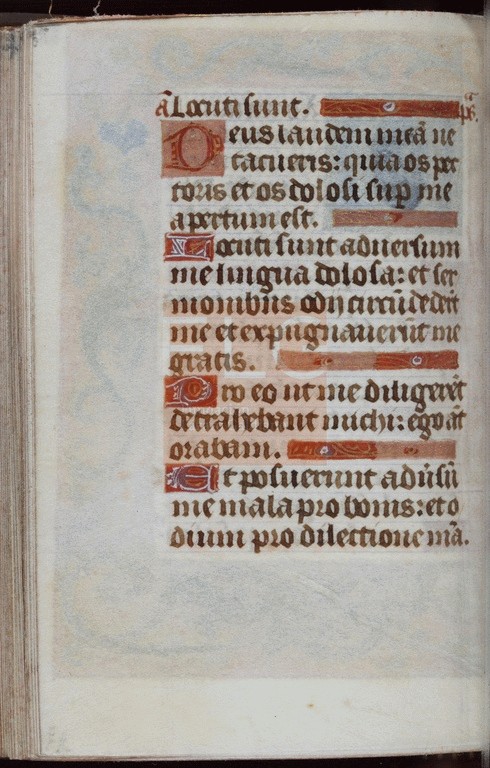 A Locuti sunt. ps.
Deus laudem meā ne
tacueris: quia os pec
toris et os dolosi sup me
apertum est.
Locuti sunt aduersum
me lingua dolosa: et ser
monibus odij circūdedeRt
me et expugnauerūt me
gratis.
Pro eo ut me diligerēt
detrahebant michi: ego āt
orabam.
Et posuerunt adūsū
me mala pro bonis: et o
dium pro dilectione mā.